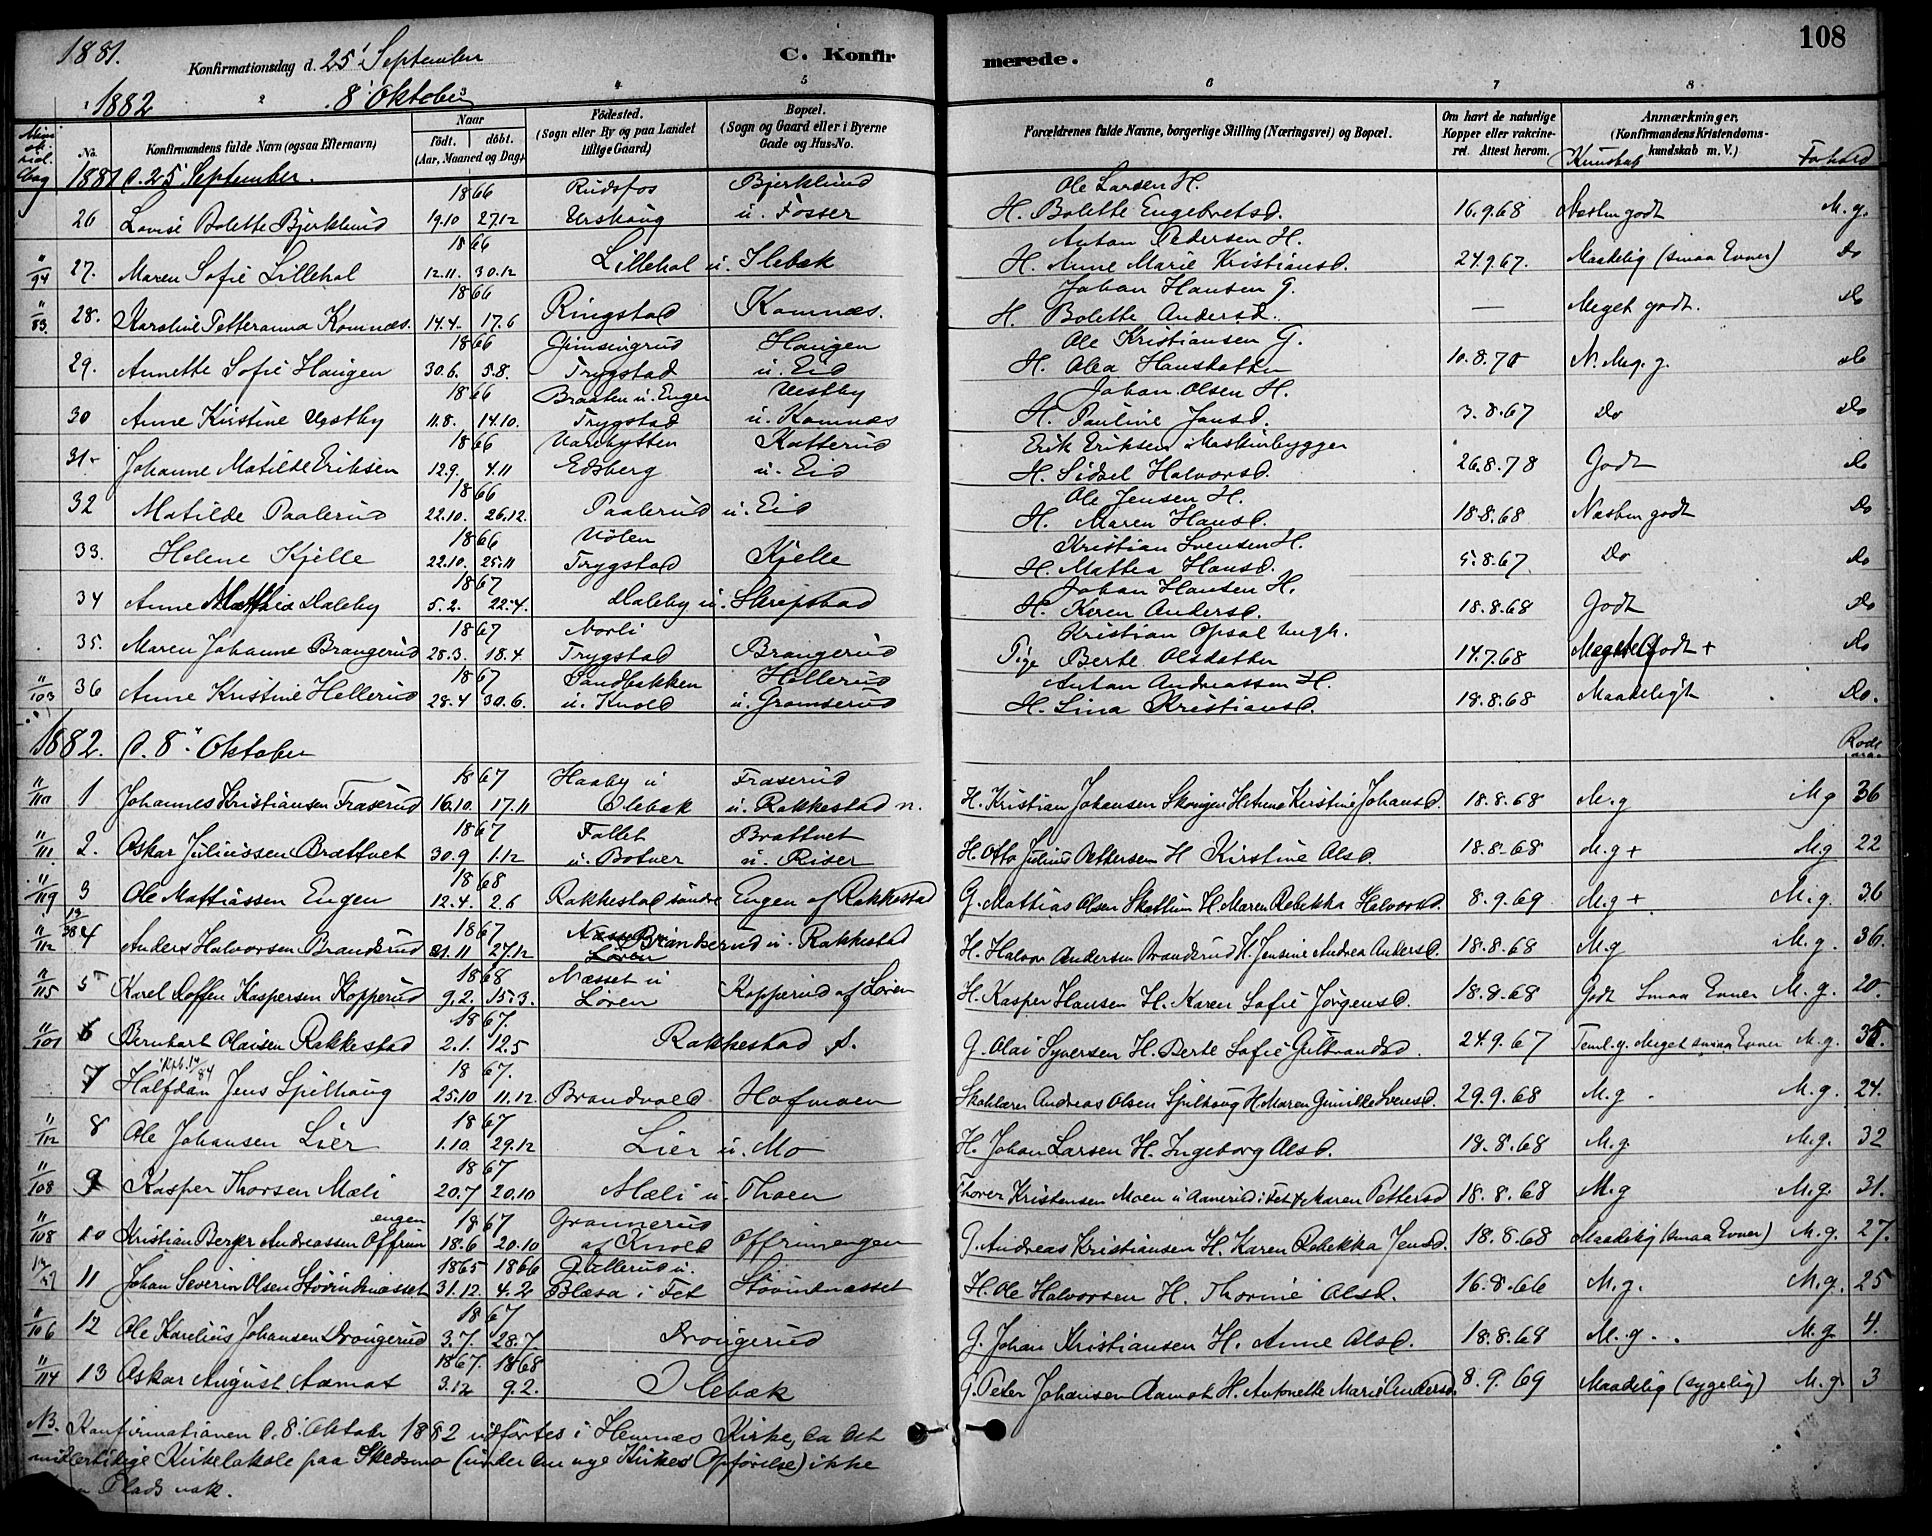 1881.
Konfirmationsdag d. 25' September
C. Konfirmerede.
108
1882
8' Oktober
No.
Konfirmandens fulde Navn (ogsaa Efternavn)
Naar
født. døbt.
(Aar, Maaned og Dag).
Fødested.
(Sogn eller By og paa Landet tillige Gaard)
Bopæl.
(Sogn og Gaard eller i Byerne Gade og Hus-No.
Forældrenes fulde Navne, borgerlige Stilling (Næringsvei) og Bopæl.
Om havt de naturlige Kopper eller vakcineret. Attest herom.
Anmærkninger.
(Konfirmandens Kristendomskundskab m. V.)
Kundskab
Forhold
1881 d. 25' September.
26 Lovise Bolette Bjerklund 1866 19.10 27.12 Rudsfos Urskoug Bjerklund u. Fosser Ole Larsen H. H. Bolette Engebretsd. 16.9.68 Næsten godt M.g.
11/94 27. Maren Sofie Lillehol 1866 12.11. 30.12 Lillehol u. Ilebæk Anton Pedersen H. H. Anne Marie Kristiansd. 24.9.67. Maadelig (smaa Evner) Do
11/83 28. Karoline Petteranna Komnæs. 1866 14.4. 17.6 Ringstad Komnæs. Johan Hansen G. H. Bolette Andersd. — Meget godt. do
29. Annette Sofie Haugen 1866 30.6. 5.8. Gimsingrud Trygstad Haugen u. Eid Ole Kristiansen G. H. Olea Hansdatter 10.8.70 N. Meg. g. do
30 Anne Kirstine Vestby 1866 11.8. 14.10. Braaten u. Enger Trygstad Vestby u. Komnæs Johan Olsen H. H. Pauline Jansd. 3.8.67 Do Do
31. Johanne Matilde Eriksen 1866 12.9. 4.11 Edsberg Katterud u. Eid Erik Eriksen Maskinbygger H. Sidsel Halvorsd. 26.8.78 Godt do
32 Matilde Paalerud 1866 22.10. 26.12. Paalerud u. Eid Ole Jensen H. H. Maren Hansd. 18.8.68 Næsten godt Do
33. Helene Kjelle 1866 22.10. 25.11 Vølen Trygstad Kjelle Kristian Svensen H. H. Mattea Hansd. 5.8.67. Do Do
34 Anne Mathia Daleby 1867 5.2. 22.4. Daleby u. Skrepstad Johan Hansen H. H. Karen Andersd. 18.8.68 Godt Do
35. Maren Johanne Brangerud 1867 28.3. 18.4 Norli Trygstad Brangerud Kristian Opsal Ungk. Pige Berte Olsdatter 14.7.68 Meget Godt + do
11/103 36 Anne Kristine Hellerud 1867 28.4 30.6. Sandbakken u. Knold Hellerud u. Gromserud Anton Andreassen H. H. Lina Kristiansd. 18.8.68 Maadeligt Do.
1882. d. 8' Oktober
Rode
11/110 1 Johannes Kristiansen Fraserud 1867 16.10. 17.11 Haaby u Ølebæk Fraserud u. Rakkestad n. H. Kristian Johansen Skougen H. Anne Kirstine Johansd. 18.8.68 M.g M g 36
11/111 2. Oskar Juliussen Brattvet 1867 30.9 1.12 Fallet u. Botner Brattvet u. Riser H. Otto Julius Pettersen H Kirstine Olsd. 18.8.68 M.g + M.g 22
11/119 3 Ole Mattiassen Engen 1868 12.4. 2.6 Rakkestad søndre Engen af Rakkestad G. Mattias Olsen Skattum H. Maren Rebekka Halvorsd. 8.9.69 M.g + M.g. 36
11/112 4 Anders Halvorsen Brandsrud 1867 21.11 27.12 Brandserud u. Rakkestad H. Halvor Andersen Brandsrud H. Jensine Andrea Andersd. 18.8.68 M.g M.g. 36.
11/115 5 Karel Doffen Kaspersen Kopperud 1868 9.2. 15.3. Næsset u Løren Kopperud af Løren H. Kasper Hansen H. Karen Sofie Jørgensd. 18.8.68 Godt Smaa Evner M.g. 20.
11/101 6 Bernhart Olaisen Rakkestad 1867. 2.1. 12.5 Rakkestad S. G. Olai Syversen H. Berte Sofie Gulbrandsd. 24.9.67 Teml. g. Meget smaa Evner M.g. 35.
7 Halfdan Jens Spilhaug 1867. 25.10 11.12. Brandvold Hofmoen Skolelærer Andreas Olsen Spilhoug H. Maren Gunilde Svensd. 29.9.68 M.g M.g. 24.
11/112 8 Ole Johansen Lier 1867 1.10. 29.12 Lier u. Mo H. Johan Larsen H. Ingeborg Olsd. 18.8.68 M.g. M.g. 32
11/108 9 Kasper Thorsen Mæli 1867 20.7 20.10 Mæli u. Thoen Thorer Kristensen Moen u Aamerud i Fet & Maren Pettersd 18.8.68 M.g M.g. 31.
11/108 10 Kristian Berger Andreassen Offrimengen 1867 18.6 20.10 Grannerud af Knold Offrimengen G. Andreas Kristiansen H. Karen Rebekka Jensd. 18.8.68 Maadelig (smaa Evner) M.g. 27.
11 Johan Severin Olsen Støvindnæsset 1865 1866 31.12. 4.2 Gullerud u. Blæsa i Fet Støvindnæsset H. Ole Halvorsen H. Thorine Olsd. 16.8.66 M.g. M.g. 25
11/106 12 Ole Karelius Johansen Drougerud 1867 3.7. 28.7 Drougerud G. Johan Kristiansen H. Anne Olsd. 18.8.68 M.g. M.g 4.
11/114 13 Oskar August Aamot 1867. 1868 3.12 9.2. Ilebæk G. Peter Johansen Aamot H. Antonette Marie Andersd. 8.9.69 Maadelig (sygelig) M.g. 3
NB. Konfirmationen d. 8' Oktober 1882 udførtes i Hemnæs Kirke, da det
midlertidige Kirkelokale paa Skedsmo (under den nye Kirkes Opførelse) ikke
Plads nok.